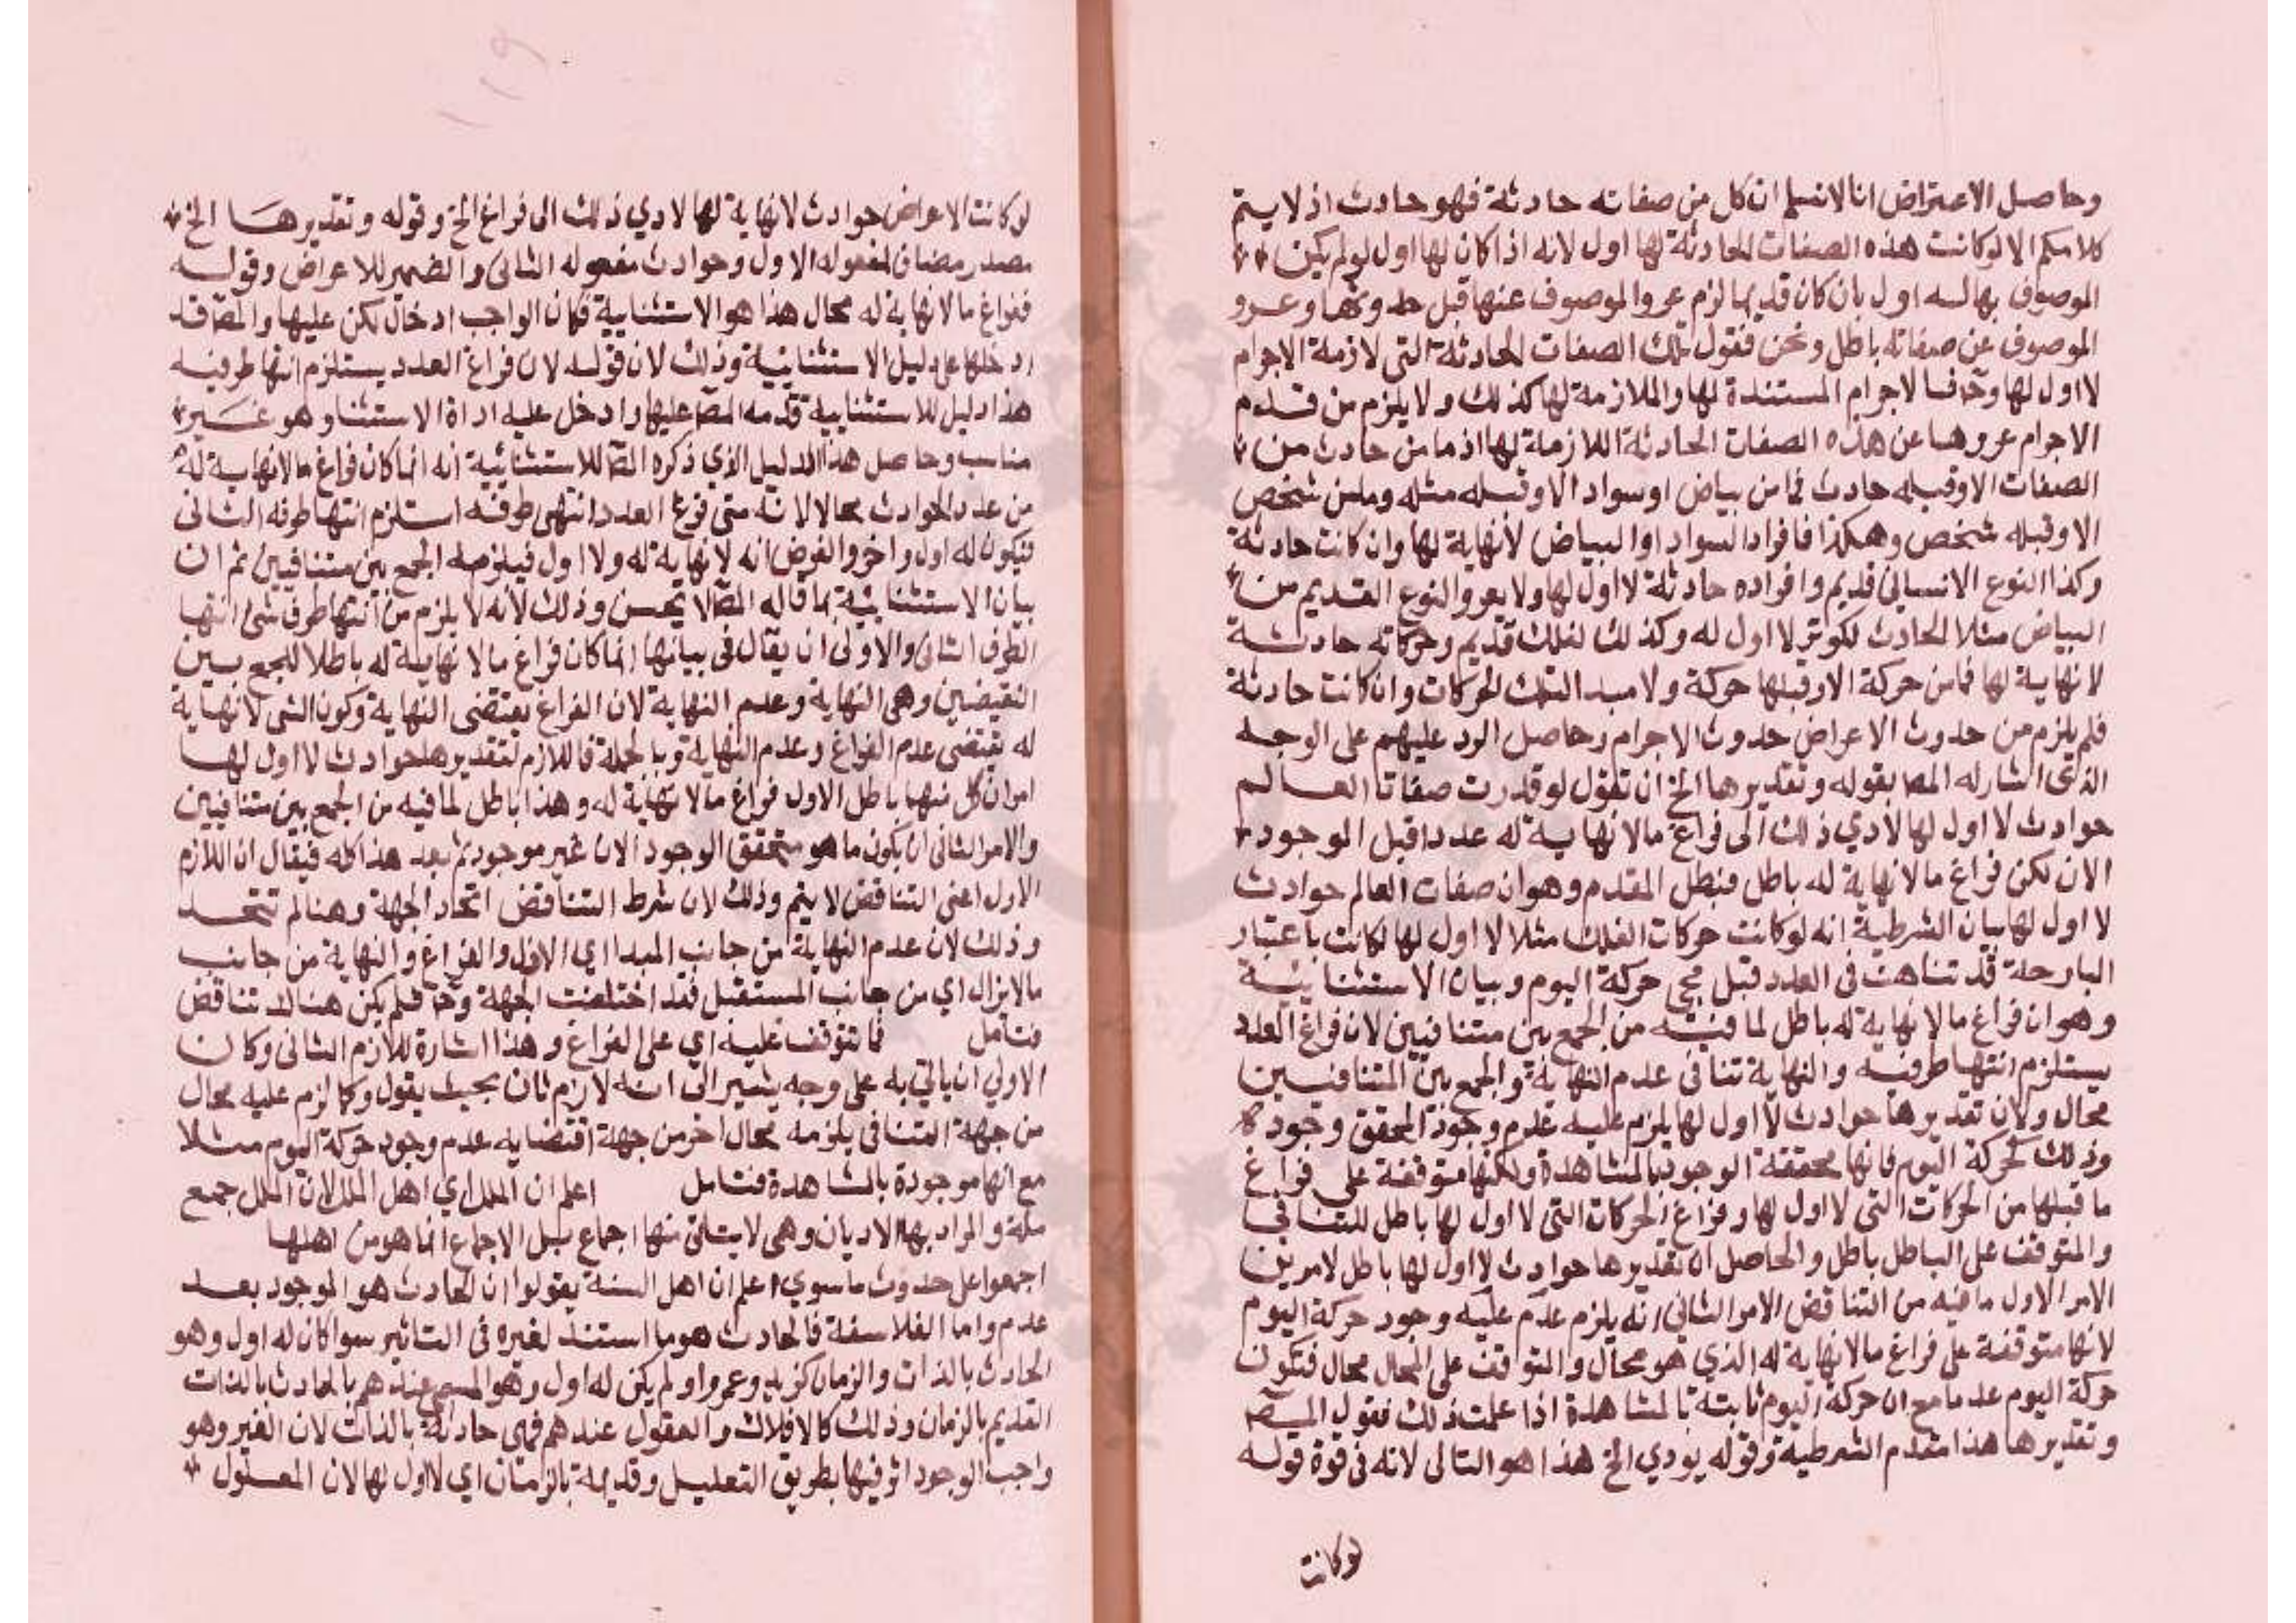 وحاصل الاعتراض انا لا نسلم ان كل من صفاته حادثة فهو حادث اذ لا يتم
كلامكم الا لو كانت هذه الصفات الحادثة لها اول لانه اذا كان لها اول لو لم يكن
الموصوف بها له اول بان كان قديما لزم عرو الموصوف عنها قبل حدوثها وعرو
الموصوف عن صفاته باطل ونحن نقول تلك الصفات الحادثة التي لازمة الاجرام
لا اول لها وح فالاجرام المستندة لها والملازمة لها كذلك ولا يلزم من قدم
الاجرام عروها عن هذه الصفات الحادثة اللازمة لها اذ ما من حادث من
الصفات الا وقبله حادث فما من بياض او سواد الا وقبله مثله وما من شخص
الا وقبله شخص وهكذا فافراد السواد او البياض لا نهاية لها وان كانت حادثة
وكذا النوع الانساني قديم وافراده حادثة لا اول لها ولا يعرو النوع القديم من
البياض مثلا الحادث لكونه لا اول له وكذلك الفلك قديم وحركاته حادثة
لا نهاية لها فما من حركة الا وقبلها حركة ولا مبدا لتلك الحركات وان كانت حادثة
فلم يلزم من حدوث الاعراض حدوث الاجرام وحاصل الرد عليهم على الوجه
الذي اشار له المص بقوله وتقديرها الخ ان تقول لو قدرت صفات العالم
حوادث لا اول لها لادي ذلك الى فراغ ما لا نهاية له عددا قبل الوجود
الان لكن فراغ ما لا نهاية له باطل فبطل المقدم وهو ان صفات العالم حوادث
لا اول لها بيان الشرطية انه لو كانت حركات الفلك مثلا لا اول لها لكانت باعتبار
البارحة قد تناهت في العدد قبل مجي حركة اليوم وبيان الاستثنائية
وهو ان فراغ ما لا نهاية له باطل لما فيه من الجمع بين متنافيين لان فراغ العدد
يستلزم انتها طرفيه والنهاية تنافى عدم النهاية والجمع بين المتنافيين
محال ولان تقديرها حوادث لا اول لها يلزم عليه عدم وجود المحقق وجوده
وذلك كحركة اليوم فانها محققة الوجود بالمشاهدة ولكنها متوقفة على فراغ
ما قبلها من الحركات التي لا اول لها وفراغ الحركات التي لا اول لها باطل للتنافي
والمتوقف على الباطل باطل والحاصل ان تقديرها حوادث لا اول لها باطل لامرين
الامر الاول ما فيه من التناقض الامر الثاني انه يلزم عليه عدم وجود حركة اليوم
لانها متوقفة على فراغ ما لا نهاية له الذي هو محال والمتوقف على المحال محال فتكون
حركة اليوم عدما مع ان حركة اليوم ثابتة بالمشاهدة اذا علمت ذلك فقول المص
وتقديرها هذا مقدم الشرطية وقوله يودي الخ هذا هو التالى لانه في قوة قوله
لو كانت
لو كانت الاعراض حوادث لا نهاية لها لادي ذلك الى فراغ الخ وقوله وتقديرها الخ
مصدر مضاف لمفعوله الاول وحوادث مفعوله الثاني والضمير للاعراض وقوله
ففراغ ما لا نهاية له محال هذا هو الاستثنائية فكان الواجب ادخال لكن عليها والمص قد
ادخلها على دليل الاستثنائية وذلك لان قوله لان فراغ العدد يستلزم انتها طرفيه
هذا دليل للاستثنائية قدمه المص عليها وادخل عليه اداة الاستثنا وهو غير
مناسب وحاصل هذا الدليل الذي ذكره المص للاستثنائية انه انما كان فراغ ما لا نهاية له
من عدد الحوادث محالا لانه متى فرغ العدد انتهى طرفه استلزم انتها طرفه الثاني
فيكون له اول واخر والفرض انه لا نهاية له ولا اول فيلزمه الجمع بين متنافيين ثم ان
بيان الاستثنائية بما قاله المص لا يحسن وذلك لانه لا يلزم من انتها طرف شئ انتها
الطرف الثاني والاولى ان يقال في بيانها انما كان فراغ ما لا نهاية له باطلا للجمع بين
النقيضين وهي النهاية وعدم النهاية لان الفراغ يقتضي النهاية وكون الشي لا نهاية
له يقتضي عدم الفراغ وعدم النهاية وبالجملة فاللازم لتقديرها حوادث لا اول لها
امران كل منهما باطل الاول فراغ ما لا نهاية له وهذا باطل لما فيه من الجمع بين متنافيين
والامر الثاني ان يكون ما هو متحقق الوجود الان غير موجود ثم بعد هذا كله فيقال ان اللازم
الاول اعني التناقض لا يتم وذلك لان شرط التناقض اتحاد الجهة وهنا لم تتحد
وذلك لان عدم النهاية من جانب المبدا اي الازل والفراغ والنهاية من جانب
ما لا يزال اي من جانب المستقبل فقد اختلفت الجهة وح فلم يكن هنالك تناقض
فتامل فما توقف عليه اي على الفراغ وهذا اشارة للازم الثاني وكان
الاولى ان ياتي به على وجه يشير الى انه لازم ثان بحيث يقول وكما لزم عليه محال
من جهة التنافي يلزمه محال اخر من جهة اقتضايه عدم وجود حركة اليوم مثلا
مع انها موجودة بالمشاهدة فتامل اعلم ان الملل اي اهل الملل لان الملل جمع
ملة والمراد بها الاديان وهي لا يتاتى منها اجماع بل الاجماع انما هو من اهلها
اجمعوا على حدوث ما سوي اعلم ان اهل السنة يقولوا ان الحادث هو الموجود بعد
عدم واما الفلاسفة فالحادث هو ما استند لغيره في التاثير سوا كان له اول وهو
الحادث بالذات والزمان كزيد وعمرو او لم يكن له اول وهو المسمى عندهم بالحادث بالذات
القديم بالزمان وذلك كالافلاك والعقول عندهم فهي حادثة بالذات لان الغير وهو
واجب الوجود اثر فيها بطريق التعليل وقديمة بالزمان اي لا اول لها لان المعلول